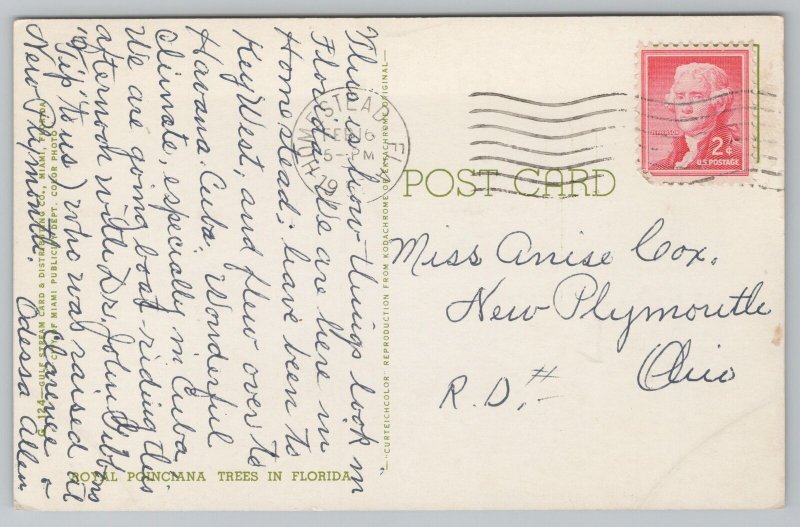 This is how things look in
Florida. We are here in
Homestead; have been to
Key West, and flew over to
Havana Cuba. Wonderful
climate, especially in Cuba.
We are going boat-riding this
afternoon with Dr. John Gibbons
("Tip" to us) who was raised at
New Plymouth. Clarence &
Odessa Allen
G-124—GULF STREAM CARD & DISTRIBUTING CO., MIAMI, FLORIDA
CITY OF MIAMI PUBLICITY DEPT. COLOR PHOTO
ROYAL POINCIANA TREES IN FLORIDA
—"CURTEICHCOLOR" REPRODUCTION FROM KODACHROME OR EKTACHROME ORIGINAL—
HOMESTEAD, FLA.
FEB 16
5-PM
POST CARD
JEFFERSON
2¢
U.S. POSTAGE
Miss Anise Cox,
New Plymouth
Ohio
R.D.#